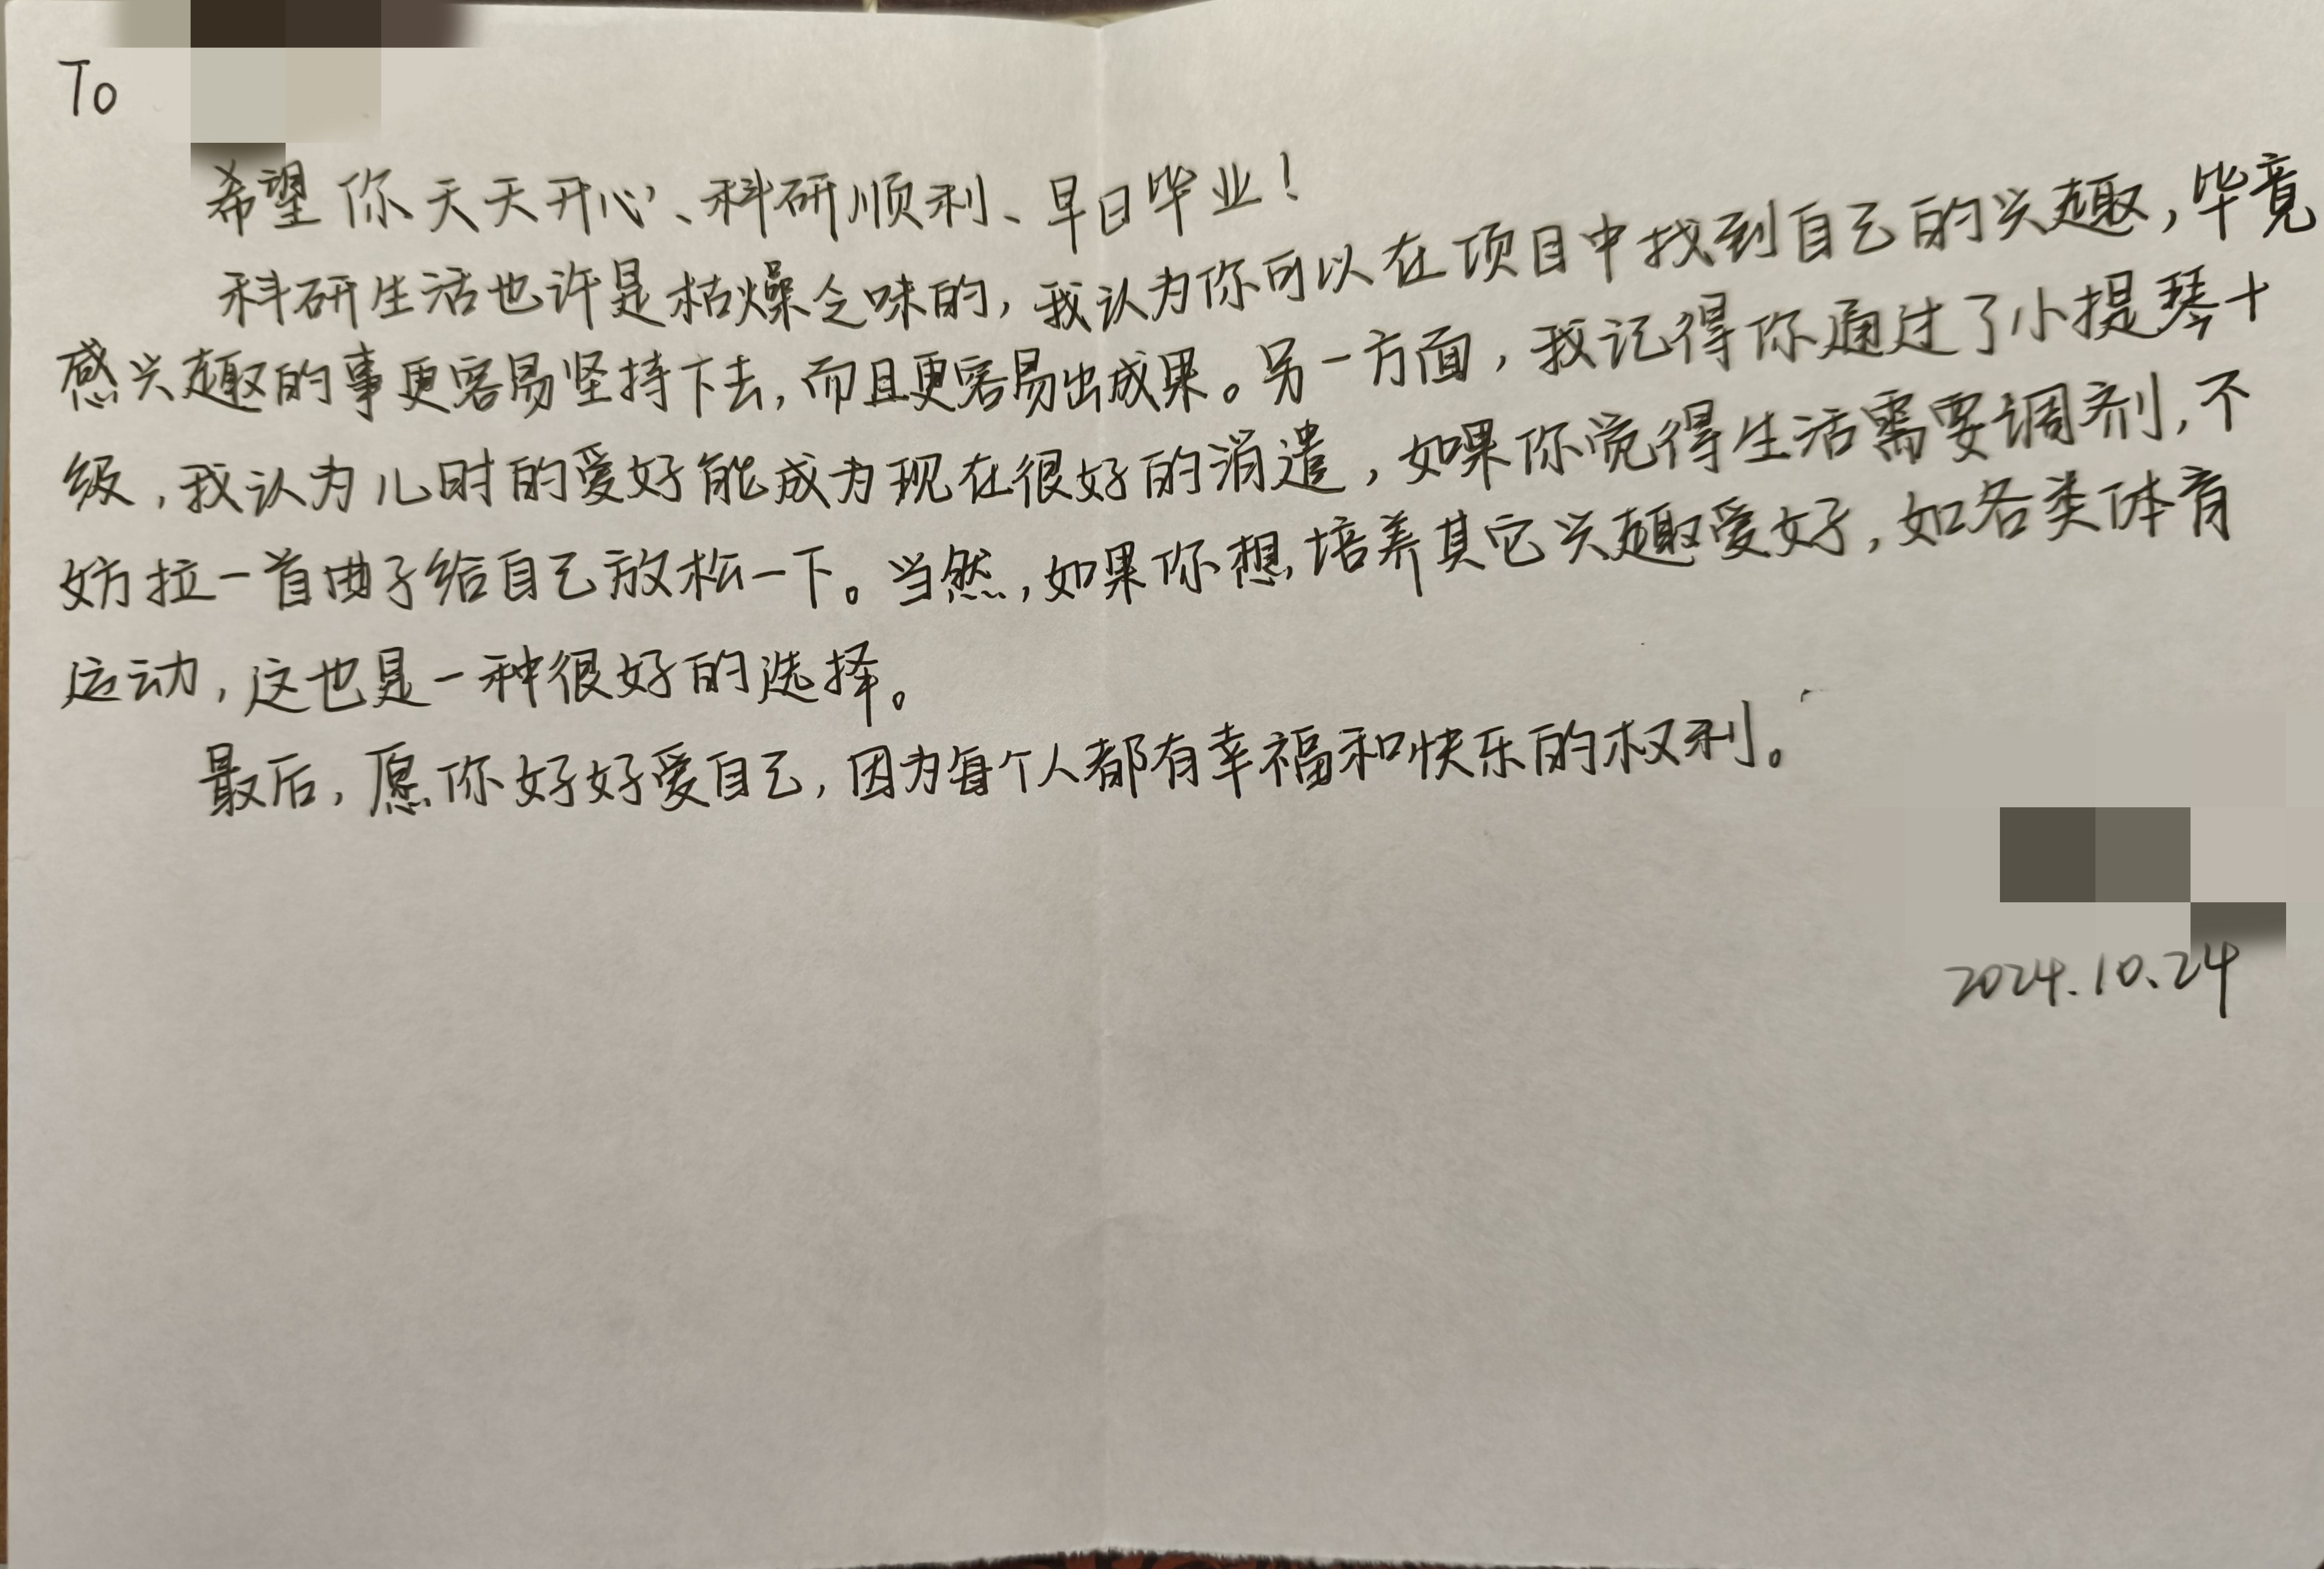 To
希望你天天开心、科研顺利、早日毕业！
科研生活也许是枯燥乏味的，我认为你可以在项目中找到自己的兴趣，毕竟
感兴趣的事更容易坚持下去，而且更容易出成果。另一方面，我记得你通过了小提琴十
级，我认为儿时的爱好能成为现在很好的消遣，如果你觉得生活需要调剂，不
妨拉一首曲子给自己放松一下。当然，如果你想培养其它兴趣爱好，如各类体育
运动，这也是一种很好的选择。
最后，愿你好好爱自己，因为每个人都有幸福和快乐的权利。
2024.10.24